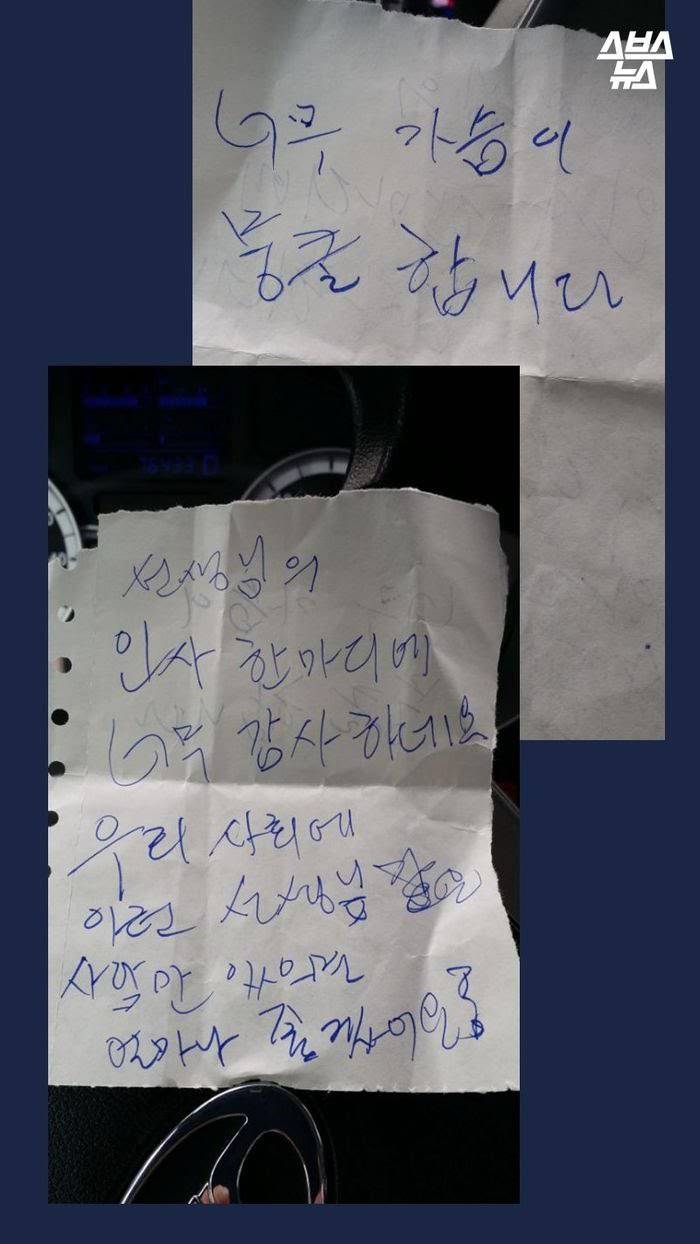 스브스
뉴스
너무 가슴이
뭉클 합니다
76433
선생님의
인사 한마디에
너무 감사하네요
우리 사회에
이런 선생님 같은
사람만 있으면
얼마나 좋겠어요